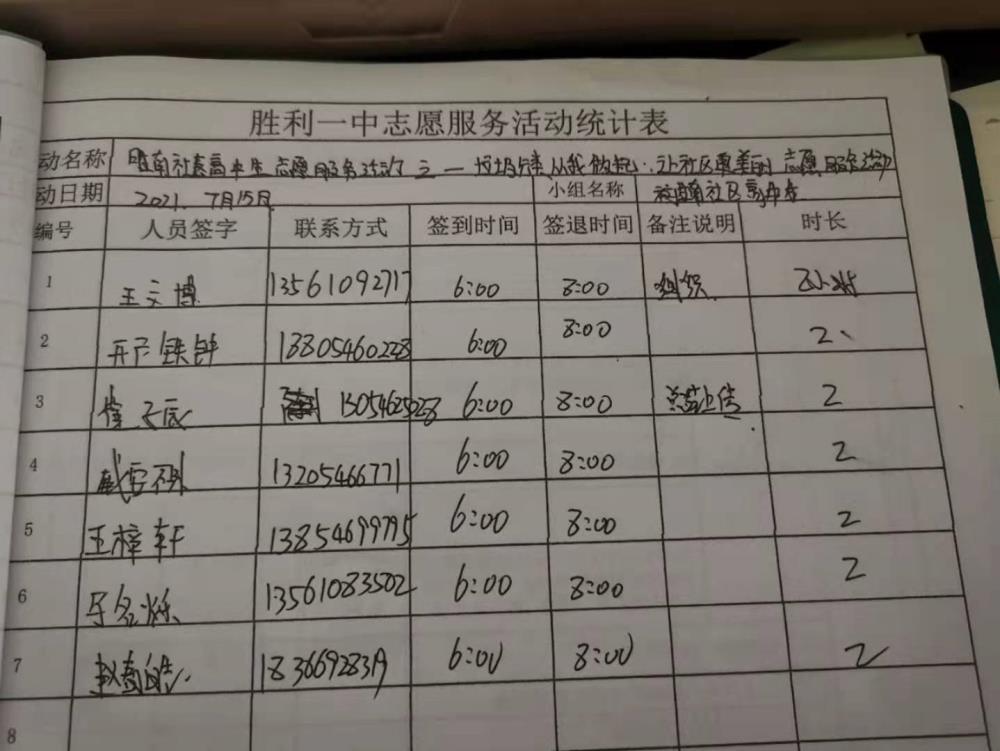 胜利一中志愿服务活动统计表
动名称 社区高中生志愿服务活动之一垃圾分类从我做起,让社区更美丽志愿服务活动
动日期 2021.7月15日 小组名称 社区高中生
编号 人员签字 联系方式 签到时间 签退时间 备注说明 时长
1 王文博 13561092717 6:00 8:00 组织 2小时
2 铁钟 13805460228 6:00 8:00 2、
3 徐子辰 6:00 8:00 总结上传 2
4 13205466771 6:00 8:00 2
5 王梓轩 13854699795 6:00 8:00 2
6 13561083502 6:00 8:00 2
7 赵 6:00 8:00 2
8